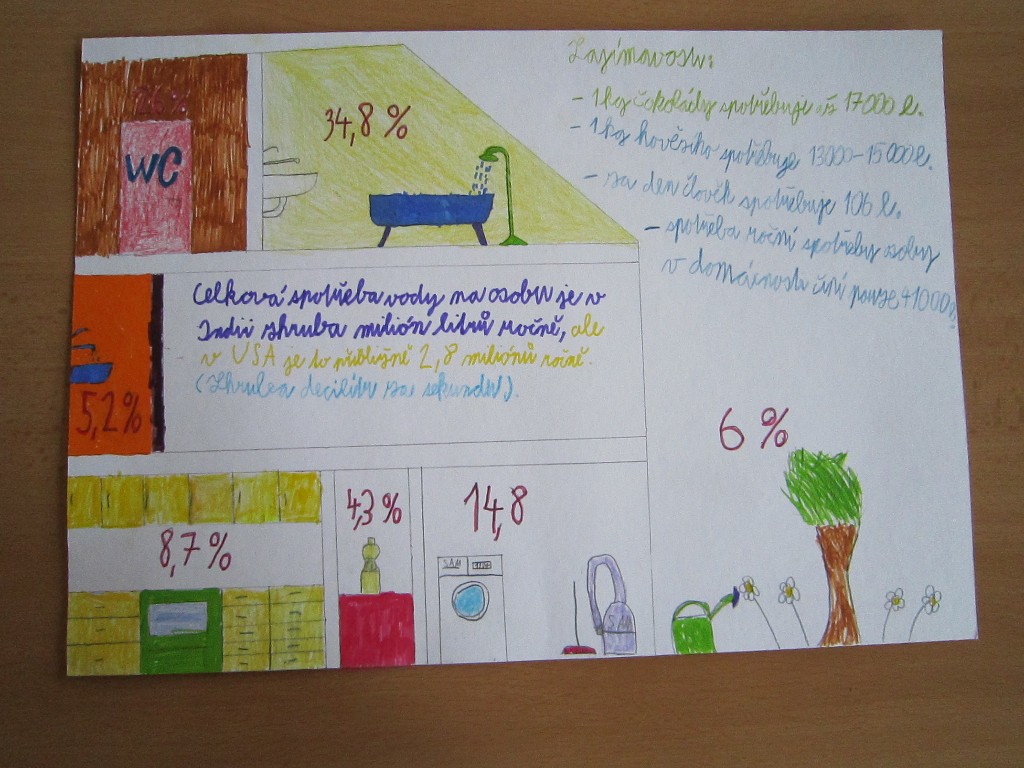 26%
WC
34,8 %
Zajímavosti:
- 1kg čokolády spotřebuje až 17000 l.
- 1kg hovězího spotřebuje 13000-15000l.
- za den člověk spotřebuje 106 l.
- spotřeba roční spotřeby osoby
v domácnosti činí pouze 41000l.
Celková spotřeba vody na osobu je v
Indii zhruba milión litrů ročně, ale
v USA je to přibližně 2,8 miliónů ročně.
(Zhruba decilitr za sekundu).
5,2%
6 %
8,7 %
4,3 %
14,8